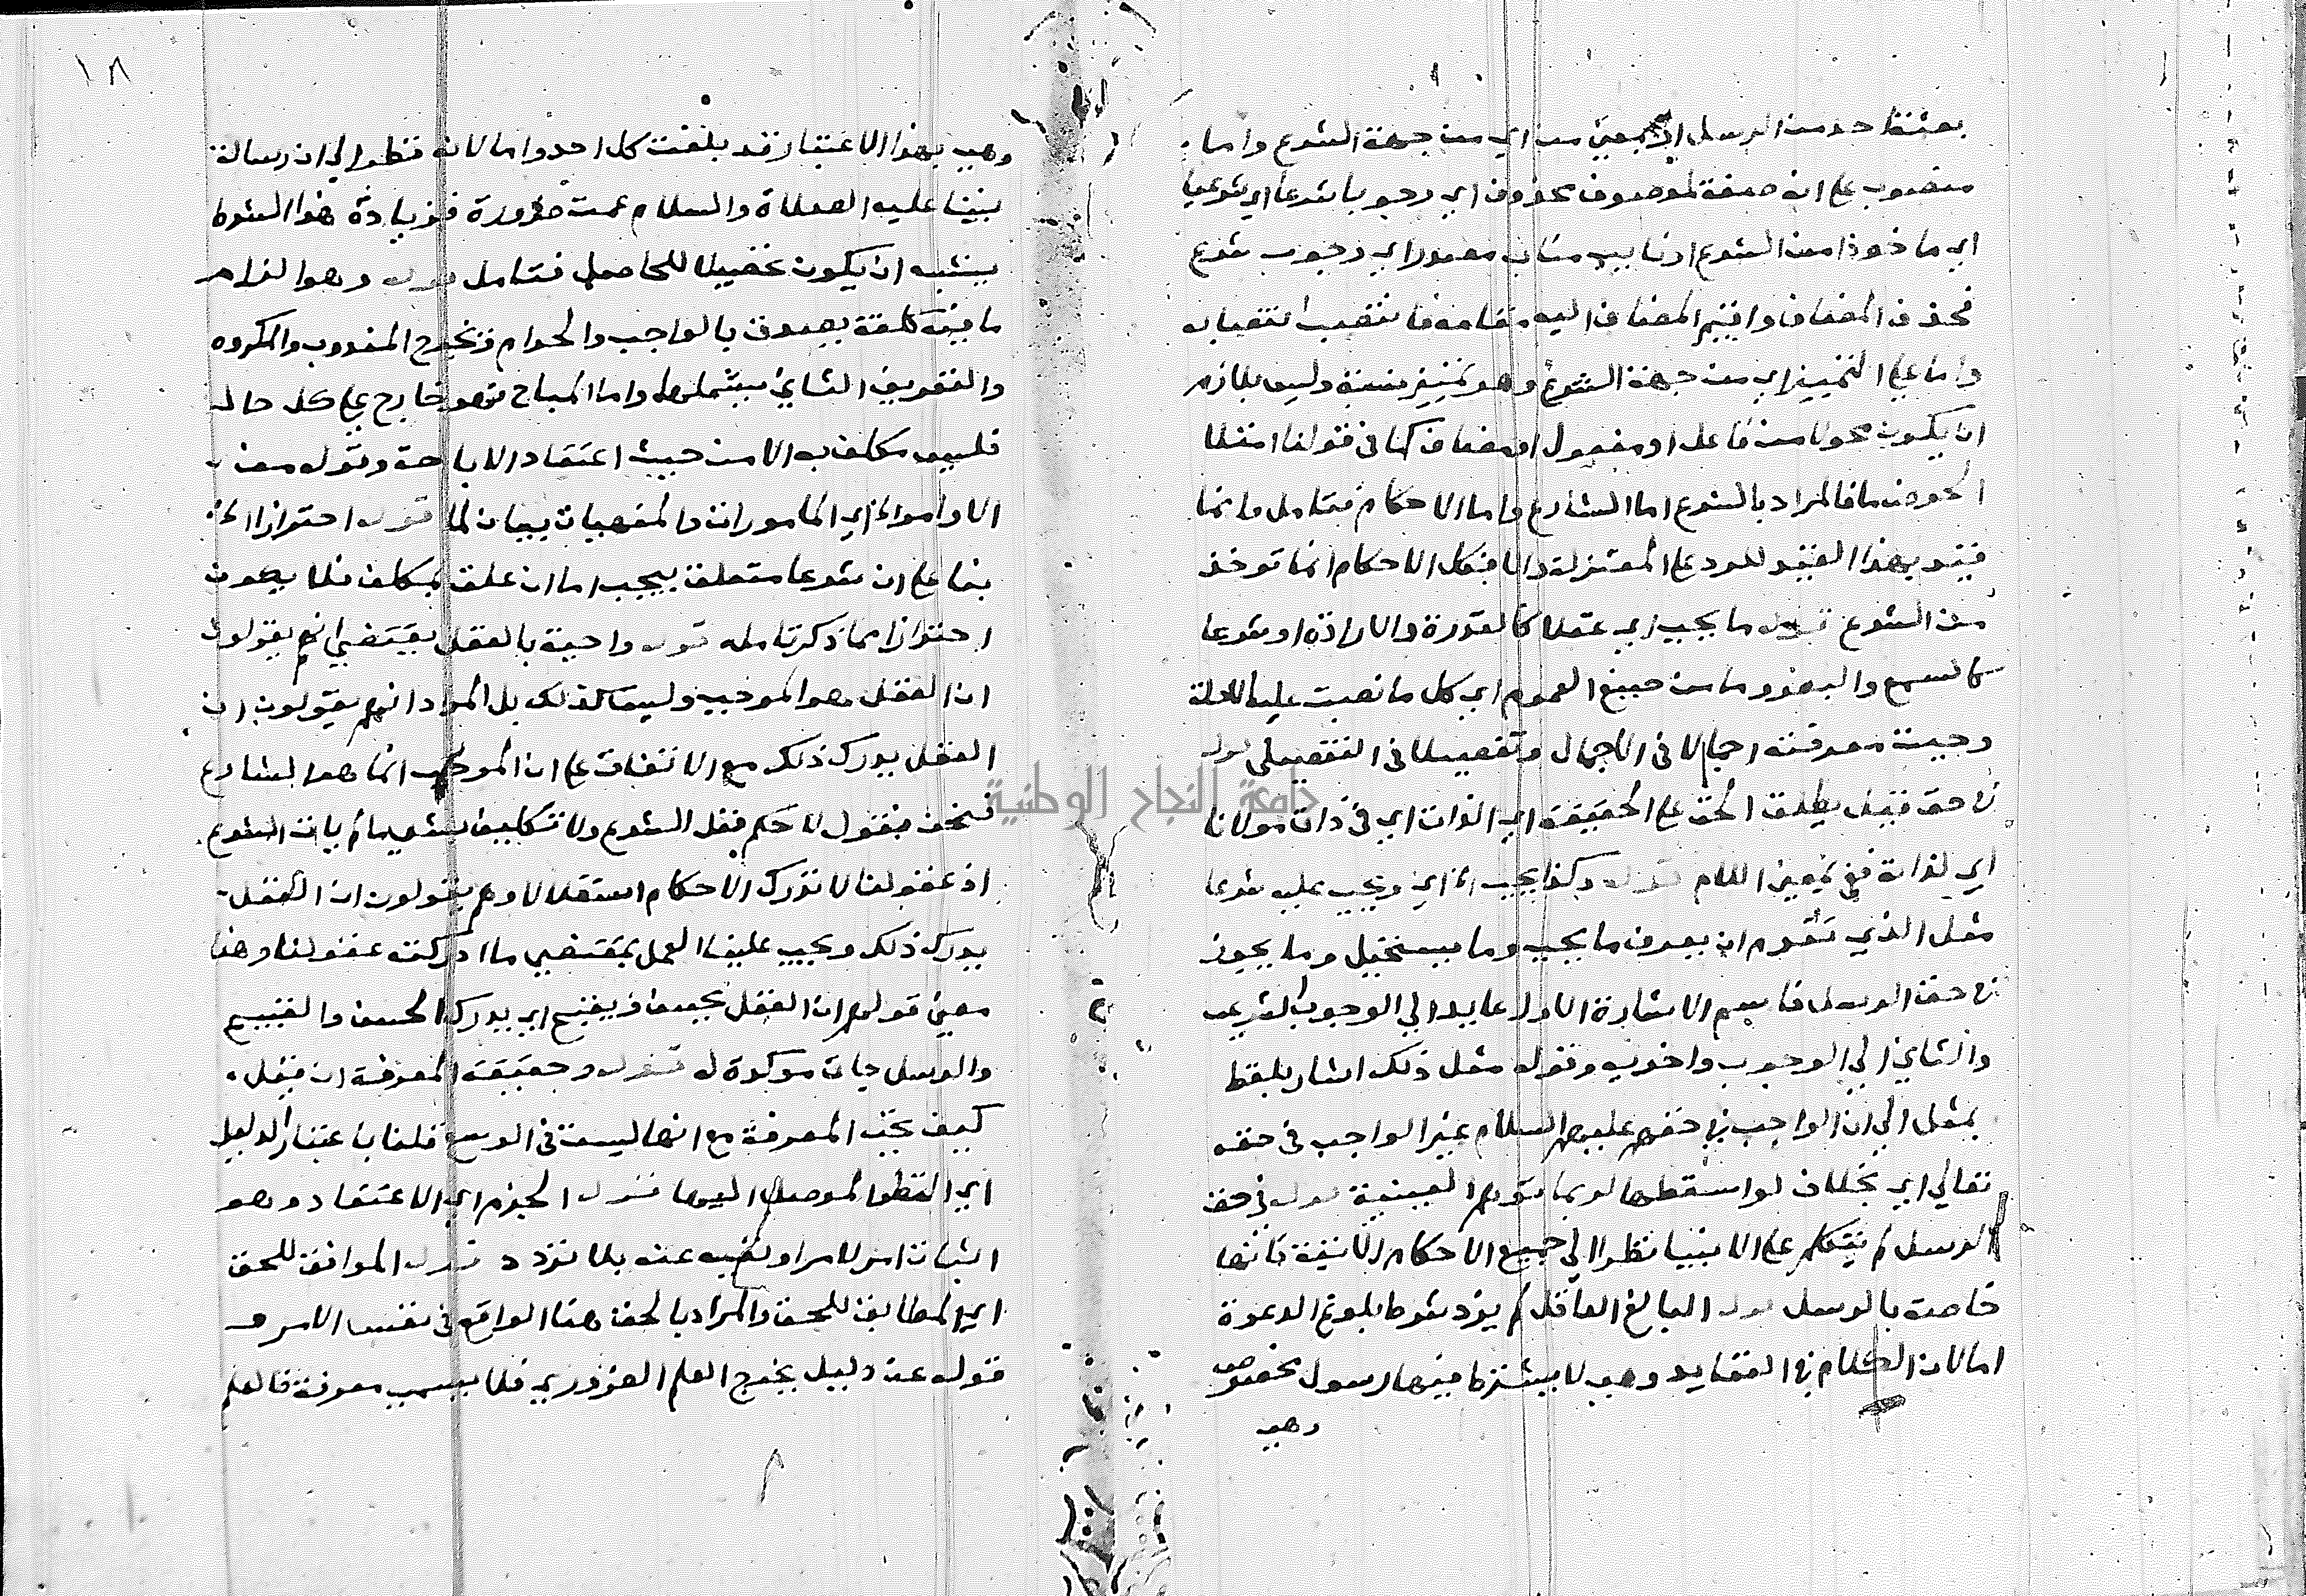 بعثة احد من الرسل اي بمعني من اي من جهة الشرع واما
منصوب علي انه صفة لموصوف محذوف اي وجوبا شرعا اي شرعيا
اي ماخوذا من الشرع او نايب مناب مصدر اي وجوب شرع
فحذف المضاف واقيم المضاف اليه مقامه فانتصب انتصابه
واما علي التمييز اي من جهة الشرع وهو تمييز نسبة وليس بلازم
ان يكون محولا من فاعل او مفعول او مضاف كما في قولنا امتلا
الحوض ما فالمراد بالشرع اما الشارع واما الاحكام فتامل وانما
قيد بهذا القيد للرد علي المعتزلة والا فكل الاحكام انما توخذ
من الشرع قوله ما يجب اي عقلا كالقدرة والارادة او شرعا
كالسمع والبصر وما من صيغ العموم اي كل ما نصبت عليه الادلة
وجبت معرفته اجمالا في الاجمال وتفصيلا في التفصيلي قوله
في حق قيل يطلق الحق علي الحقيقة اي الذات اي في ذات مولانا
اي لذاته ففي بمعني اللام قوله وكذا يجب الخ اي ويجب عليه شرعا
مثل الذي تقدم ان يعرف ما يجب وما يستحيل وما يجوز
في حق الرسل فاسم الاشارة الاول عايد الي الوجوب الشرعي
والثاني الي الوجوب واخويه وقوله مثل ذلك اشار بلفظ
بمثل الي ان الواجب في حقهم عليهم السلام غير الواجب في حقه
تعالي اي بخلاف لو اسقطها لربما توهم العينية قوله في حق
الرسل لم يتكلم علي الانبيا نظرا الي جميع الاحكام الاتية فانها
خاصة بالرسل قوله البالغ العاقل لم يزد شرط بلوغ الدعوة
اما لان الكلام في العقايد وهي لا يشترط فيها رسول مخصوص
وهي
١٨
وهي بهذا الاعتبار قد بلغت كل احد واما لانه نظر الي ان رسالة
نبينا عليه الصلاة والسلام عمت ضرورة فزيادة هذا الشرط
يشبه ان يكون تحصيلا للحاصل فتامل قوله وهو الزام
ما فيه كلفة يصدق بالواجب والحرام فتخرج المندوب والمكروه
والتعريف الثاني يشملهما واما المباح فهو خارج علي كل حال
فليس مكلف به الا من حيث اعتقاد الاباحة وقوله من
الاوامر الخ اي المامورات والمنهيات بيان لما قوله احترازا الخ
بنا علي ان شرعا متعلق بيجب اما ان علق بمكلف فلا يكون
احترازا مما ذكر تامله قوله واجبة بالعقل يقتضي انهم يقولون
ان العقل هو الموجب وليس كذلك بل المراد انهم يقولون ان
العقل يدرك ذلك مع الاتفاق علي ان الموجب انما هو الشارع
فنحن نقول لا حكم قبل الشرع ولا تكليف بشي ما لم يات الشرع
اذ عقولنا لا تدرك الاحكام استقلالا وهم يقولون ان العقل
يدرك ذلك ويجب علينا العمل بمقتضي ما ادركته عقولنا وهذا
معني قولهم ان العقل يحسن ويقبح اي يدرك الحسن والقبيح
والرسل جات موكدة له قوله وحقيقة المعرفة ان قيل
كيف تجب المعرفة مع انها ليست في الوسع قلنا باعتبار الدليل
اي النظر الموصل اليها قوله الجزم اي الاعتقاد وهو
اثبات امر لامر او نفيه عنه بلا تردد قوله الموافق للحق
اي المطابق للحق والمراد بالحق هنا الواقع في نفس الامر و
قوله عن دليل يخرج العلم الضروري فلا يسمي معرفة فالعلم
جامعة النجاح الوطنية